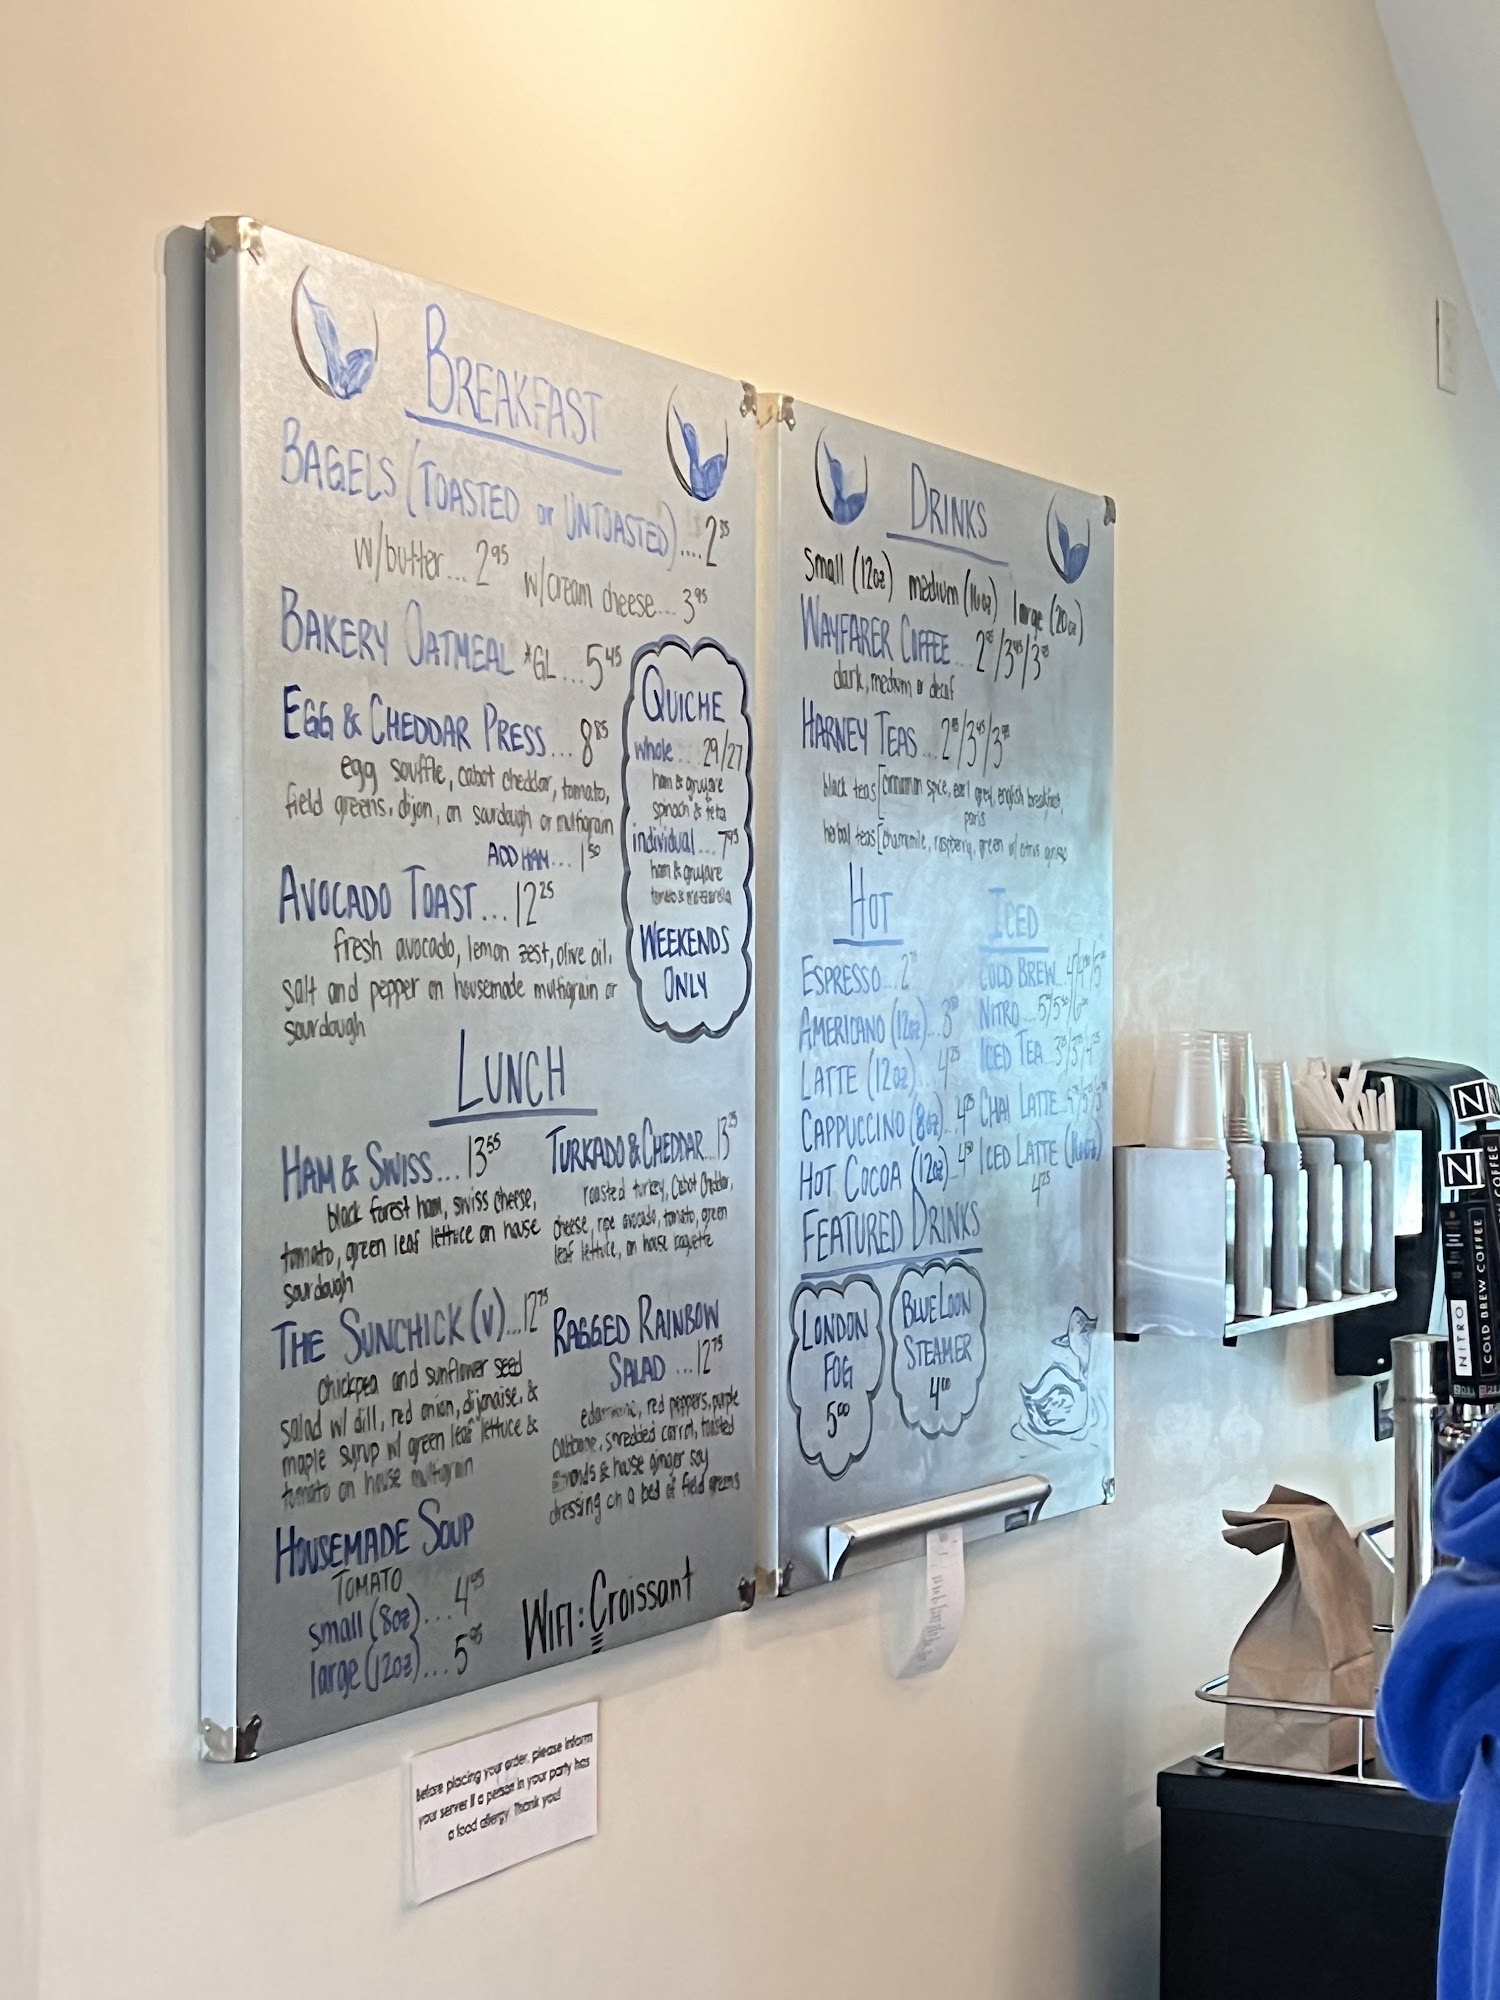 BREAKFAST
BAGELS (TOASTED or UNTOASTED)....2
w/butter... 2 95 w/cream cheese... 3 95
BAKERY OATMEAL *GL ... 5 45
EGG & CHEDDAR PRESS... 8 85
egg souffle, cabot cheddar, tomato,
field greens, dijon, on sourdough or multigrain
ADD HAM... 1 50
AVOCADO TOAST... 12 25
fresh avocado, lemon zest, olive oil,
salt and pepper on housemade multigrain or
sourdough
QUICHE
whole...29/27
ham & gruyare
spinach & feta
individual...7 95
ham & gruyare
tomato & mozzarella
WEEKENDS
ONLY
LUNCH
HAM & SWISS... 13 55
black forest ham, swiss cheese,
tomato, green leaf lettuce on house
sourdough
TURKADO & CHEDDAR...13 25
roasted turkey, cabot cheddar,
cheese, ripe avocado, tomato, green
leaf lettuce, on house baguette
THE SUNCHICK (V)...12 75
chickpea and sunflower seed
salad w/ dill, red onion, dijonaise, &
maple syrup w/ green leaf lettuce &
tomato on house multigrain
RAGGED RAINBOW
SALAD ...12 75
edamame, red peppers, purple
cabbage, shredded carrot, toasted
almonds & house ginger soy
dressing on a bed of field greens
HOUSEMADE SOUP
TOMATO
small (8oz)... 4 95
large (12oz)... 5 95
WIFI: Croissant
DRINKS
small (12oz) medium (16oz) large (20oz)
WAYFARER COFFEE...
dark, medium or decaf
HARNEY TEAS...
black teas [cinnamon spice, earl grey, english breakfast,
paris
herbal teas [chamomile, raspberry, green w/ citrus
HOT
ESPRESSO...
AMERICANO (12oz)...
LATTE (12oz)
CAPPUCCINO (8oz)...
HOT COCOA (12oz)...
ICED
COLD BREW...
NITRO...
ICED TEA...
CHAI LATTE...
ICED LATTE (16oz)
4 25
FEATURED DRINKS
LONDON
FOG
5 00
BLUE LOON
STEAMER
4 00
Before placing your order, please inform
your server if a person in your party has
a food allergy. Thank you!
N
N
NITRO
COLD BREW COFFEE
COFFEE